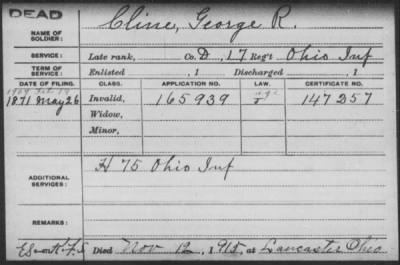 DEAD
NAME OF SOLDIER: Cline, George R.
SERVICE: Late rank, Co. D, 17 Reg't Ohio Inf
TERM OF SERVICE: Enlisted , 1 Discharged , 1
DATE OF FILING. CLASS. APPLICATION NO. LAW. CERTIFICATE NO.
1871 May 26 Invalid, 165939 147257
Widow,
Minor,
ADDITIONAL SERVICES: H 75 Ohio Inf
REMARKS:
Died Nov 12, 1915, at Lancaster Ohio